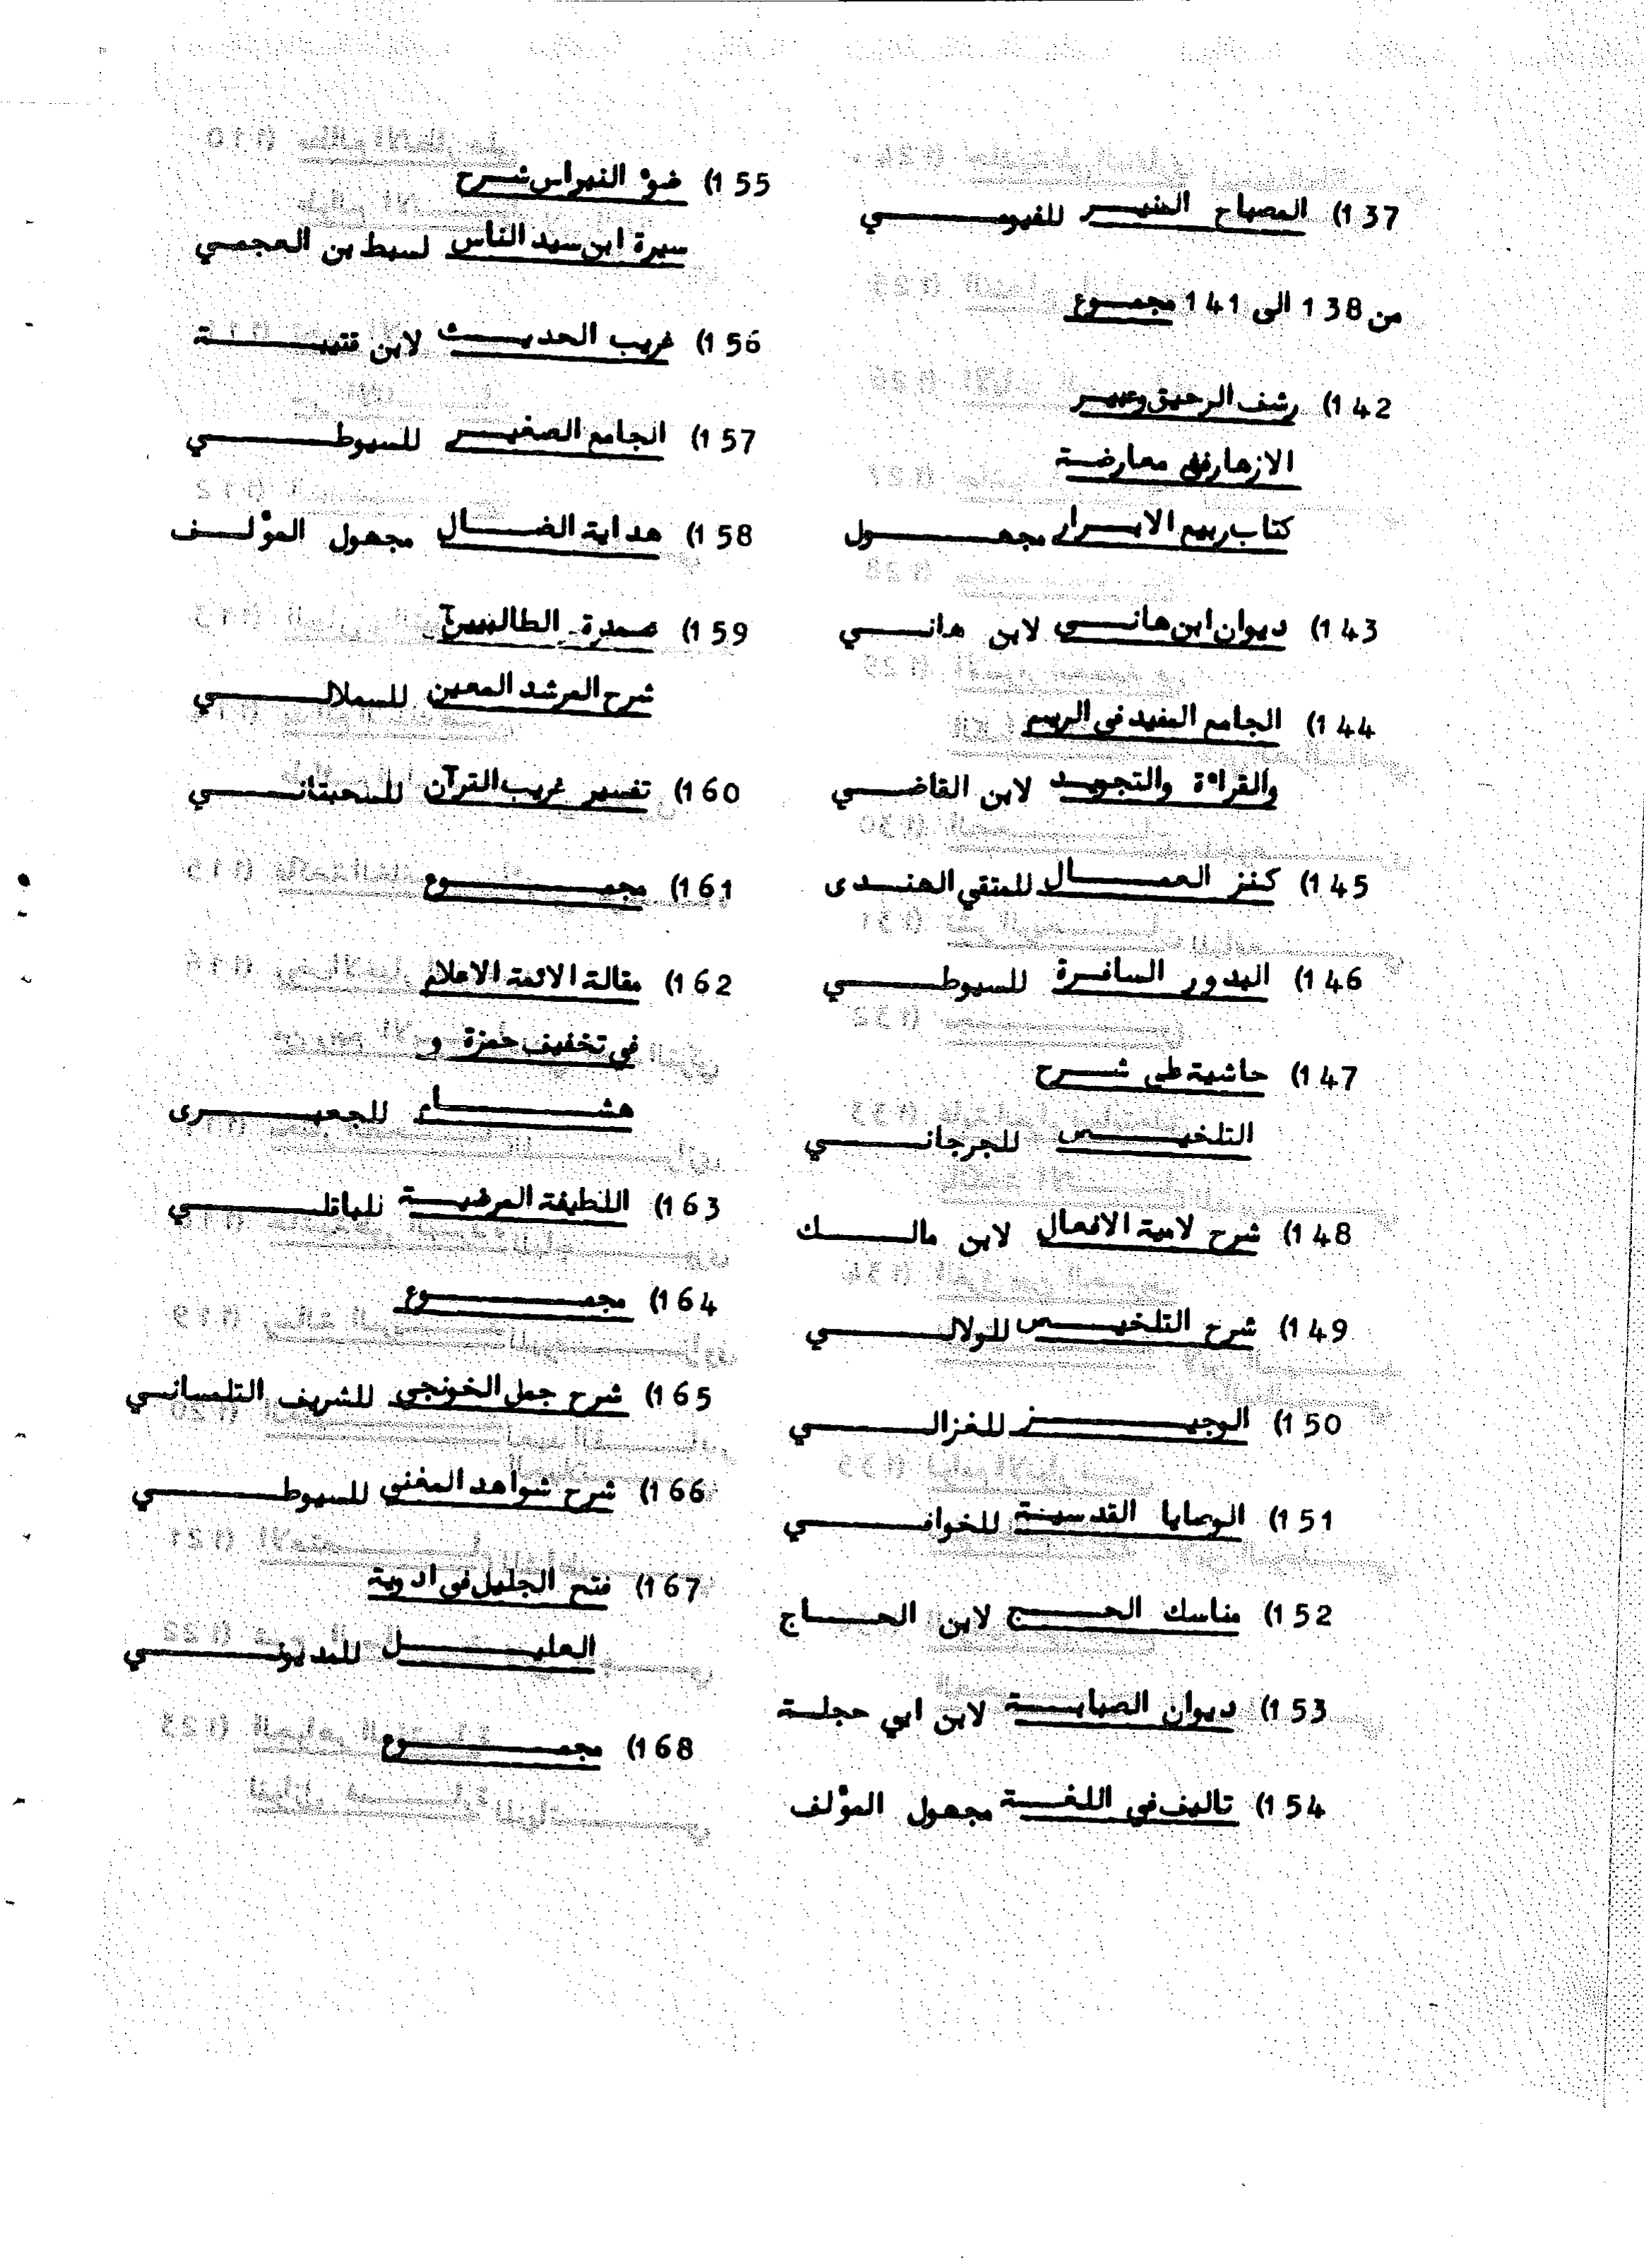 137) المصباح المنير للفيومي
من 138 الى 141 مجموع
142) رشف الرحيق وعبير
الازهار في معارضة
كتاب ربيع الابرار مجهول
143) ديوان ابن هاني لابن هاني
144) الجامع المفيد في الرسم
والقراءة والتجويد لابن القاضي
145) كنز العمال للمتقي الهندى
146) البدور السافرة للسيوطي
147) حاشية على شرح
التلخيص للجرجاني
148) شرح لامية الافعال لابن مالك
149) شرح التلخيص للولالي
150) الوجيز للغزالي
151) الوصايا القدسية للخوافي
152) مناسك الحج لابن الحاج
153) ديوان الصبابة لابن ابي حجلة
154) تاليف في اللغة مجهول المؤلف
155) ضوء النبراس شرح
سيرة ابن سيد الناس لسبط بن العجمي
156) غريب الحديث لابن قتيبة
157) الجامع الصغير للسيوطي
158) هداية الضال مجهول المؤلف
159) الطالبين
شرح المرشد المعين للسملالي
160) تفسير غريب القرآن
161) مجموع
162) مقالة الائمة الاعلام
في تخفيف حمزة و
هشام للجعبرى
163) اللطيفة المرضية للباقلي
164) مجموع
165) شرح جمل الخونجي للشريف التلمساني
166) شرح شواهد المغني للسيوطي
167) فتح الجليل في ادوية
العليل للمديوني
168) مجموع